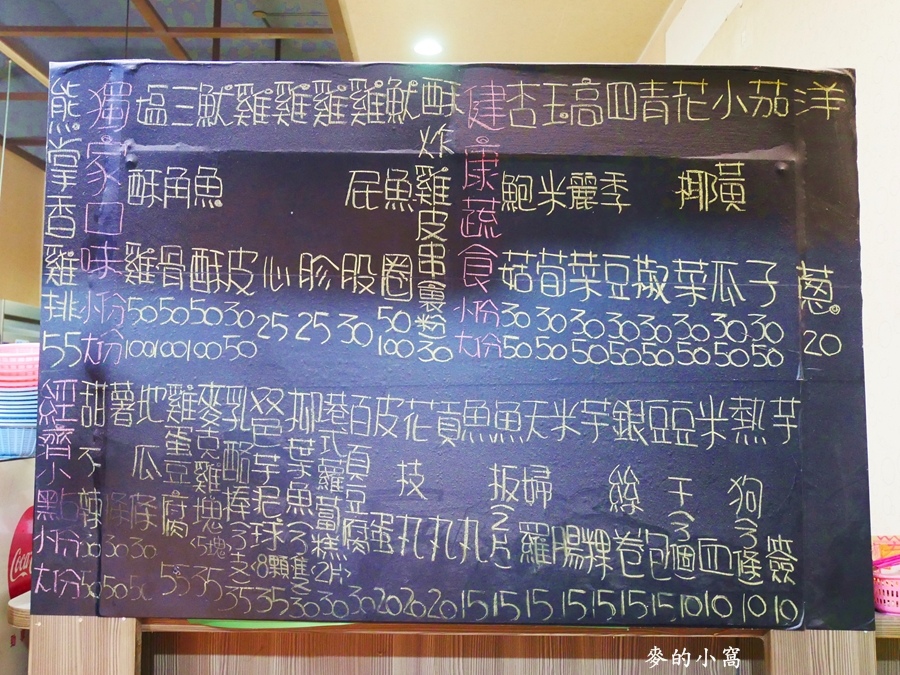 熊掌香雞排55
獨家口味小份大份
塩酥雞50100
三角骨50100
魷魚酥50100
雞皮3050
雞心25
雞胗25
雞屁股30
魷魚圈50100
酥炸雞皮串裹粉30
健康蔬食小份大份
杏鮑菇3050
玉米荀3050
高麗菜3050
四季豆3050
青椒3050
花椰菜3050
小黃瓜3050
茄子3050
洋蔥20
經濟小點小份大份
甜不辣3050
薯條3050
地瓜條3050
雞蛋豆腐
麥克雞塊<5塊>35
乳酪棒3支35
双色芋泥球8顆35
柳葉魚3隻30
港式蘿蔔糕<2片>30
百頁豆腐30
皮蛋20
花枝丸20
貢丸20
魚丸15
魚板2片15
天婦羅15
米腸15
芋粿15
銀絲卷15
豆包15
豆干3個10
米血10
熱狗3條10
芋簽10
麥的小窩